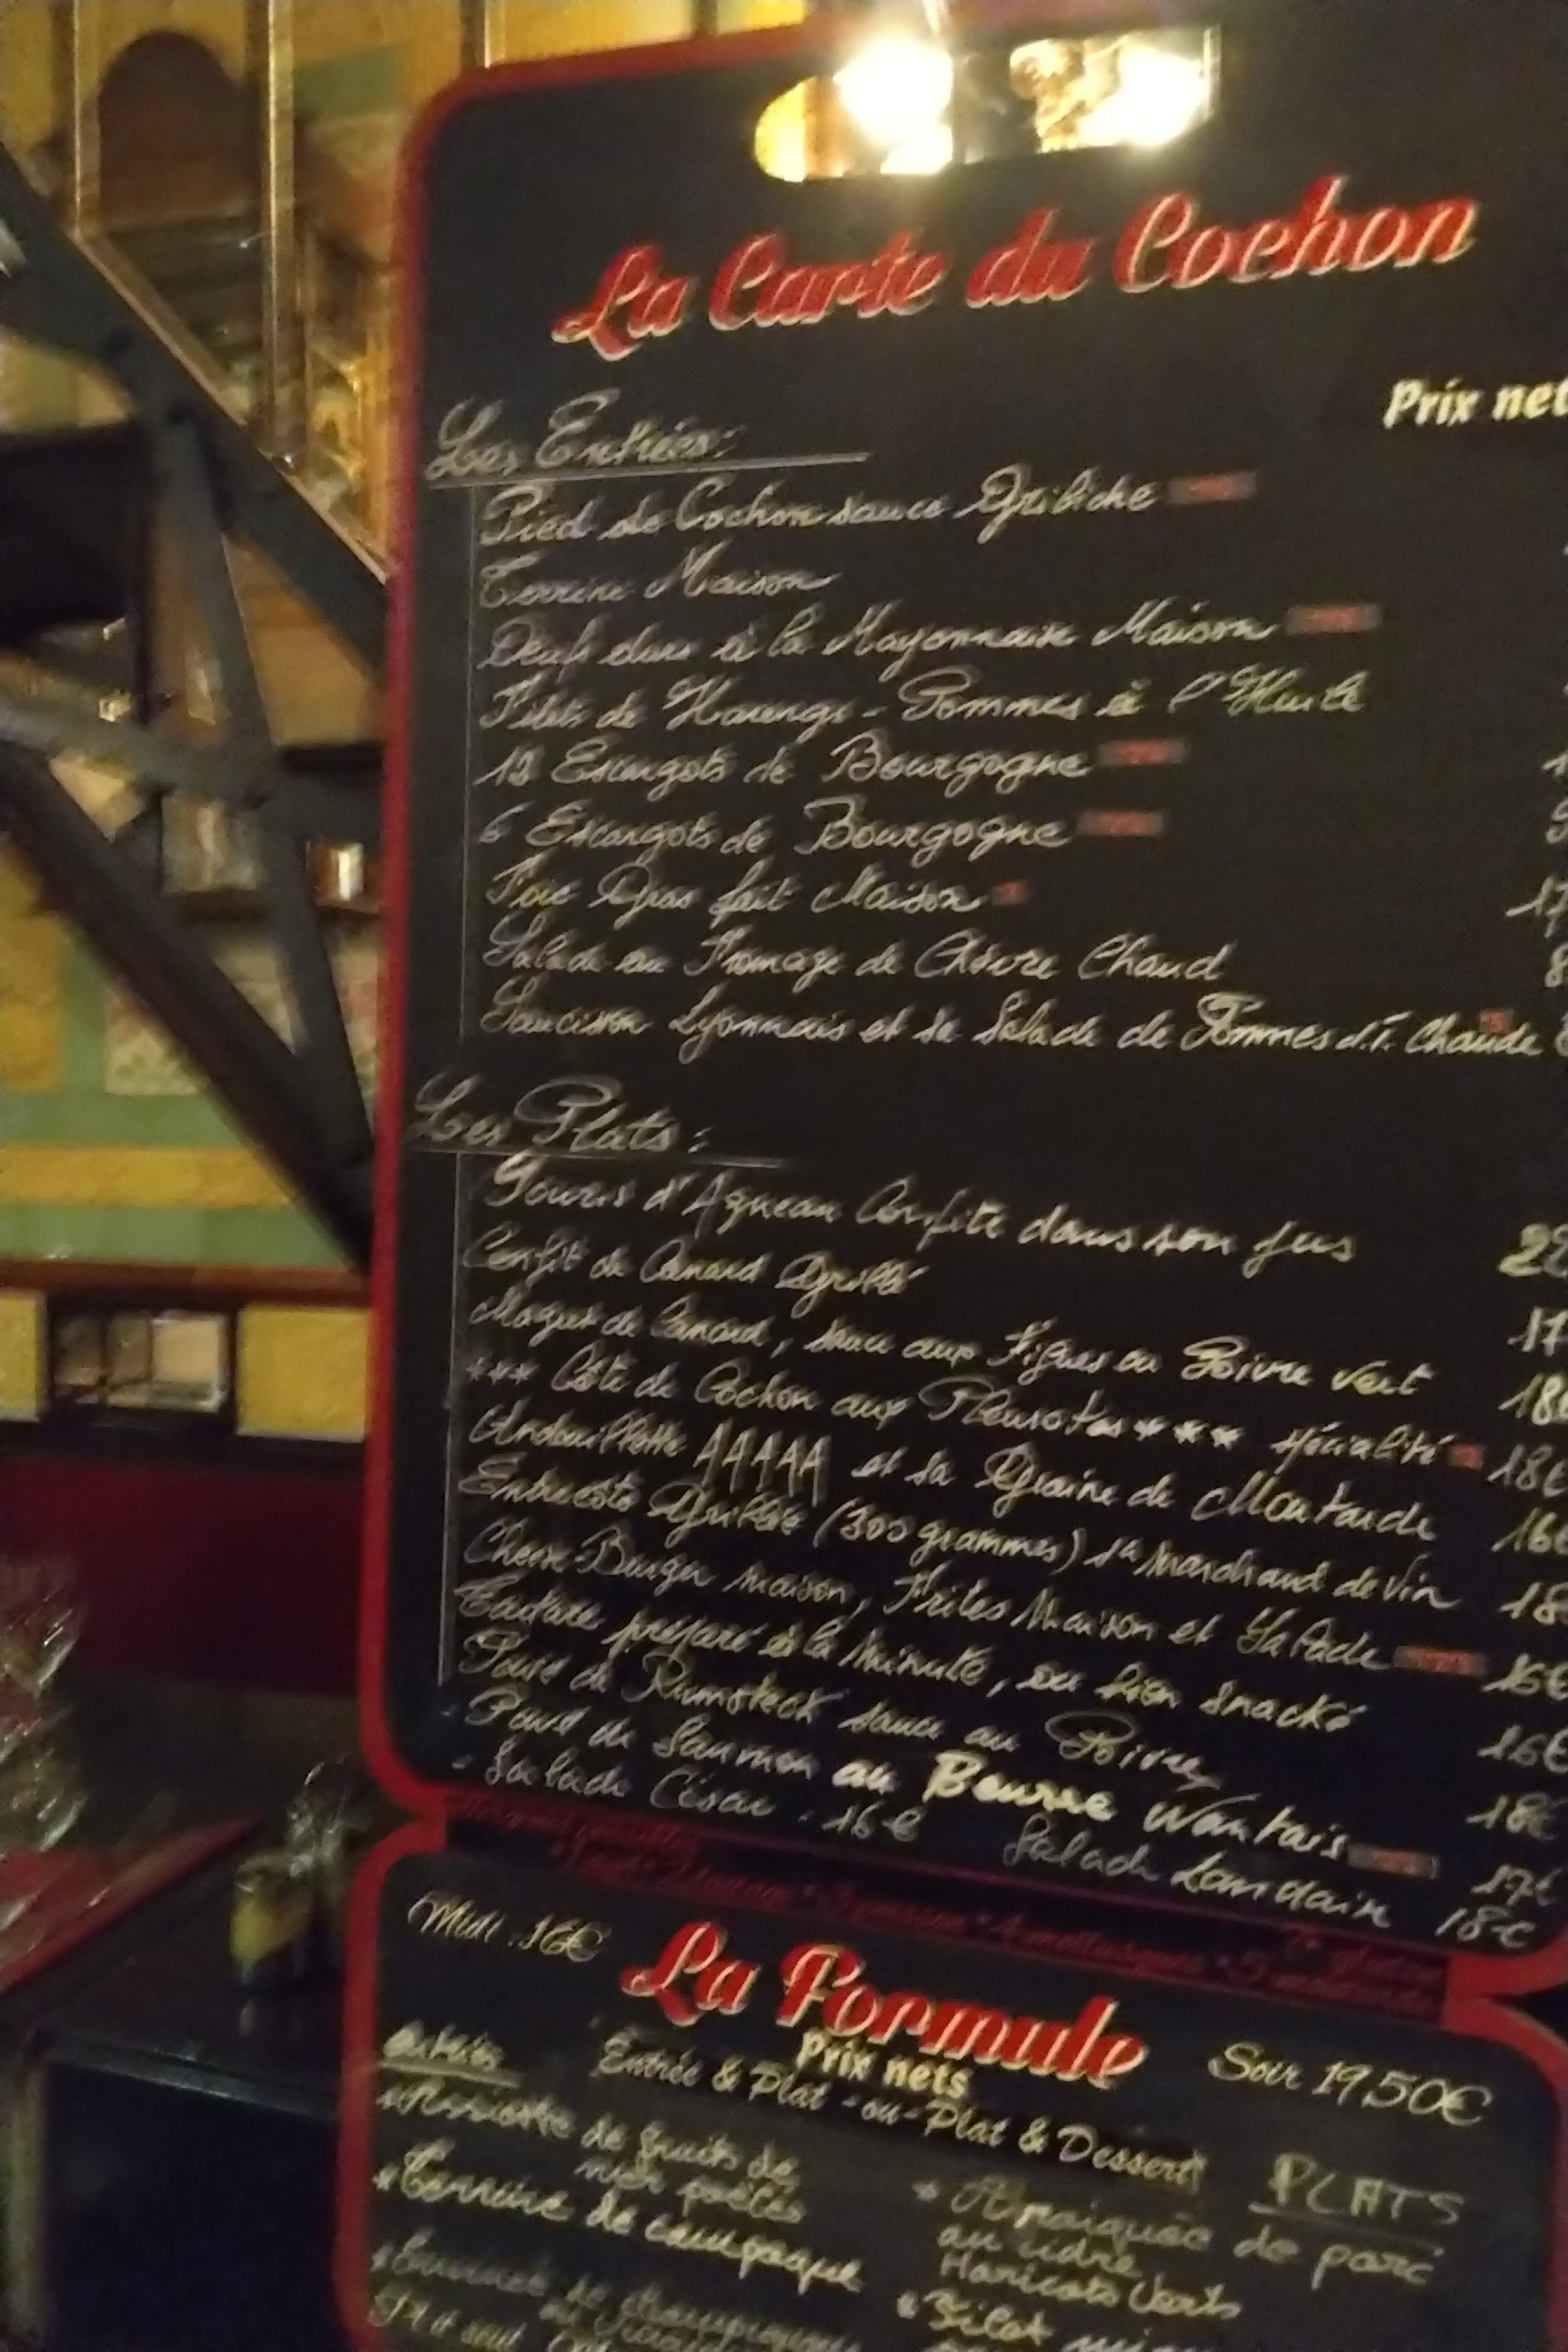 La Carte du Cochon
Prix net
Les Entrées:
Pied de Cochon sauce Gribiche
Terrine Maison
Oeufs durs à la Mayonnaise Maison
Filets de Harengs - Pommes à l'Huile
12 Escargots de Bourgogne
6 Escargots de Bourgogne
Foie Gras fait Maison 17
Salade au Fromage de Chèvre Chaud 8
Saucisson Lyonnais et sa Salade de Pommes d.T. Chaude
Les Plats:
Souris d'Agneau Confite dans son jus 22
Confit de Canard Grillé 17
Magret de Canard, sauce aux Figues ou Poivre Vert 18€
*** Côte de Cochon aux Pleurotes *** spécialité 18€
Andouillette AAAAA et sa Graine de Moutarde 16€
Entrecôte Grillée (300 grammes) sce Marchand de Vin 18
Cheese Burger maison, Frites Maison et Salade 16€
Tartare préparé à la Minute, ou bien snacké 16€
Pavé de Rumsteck sauce au Poivre 18€
Pavé de Saumon au Beurre Nantais 17€
- Salade César - 16€ Salade Landaise 18€
Midi 16€
La Formule
Soir 19,50€
Prix nets
Entrée & Plat -ou- Plat & Dessert
entrées
PLATS
* Assiette de fruits de
mer
* Terrine de campagne
de porc
au cidre
Haricots Verts
* Filet